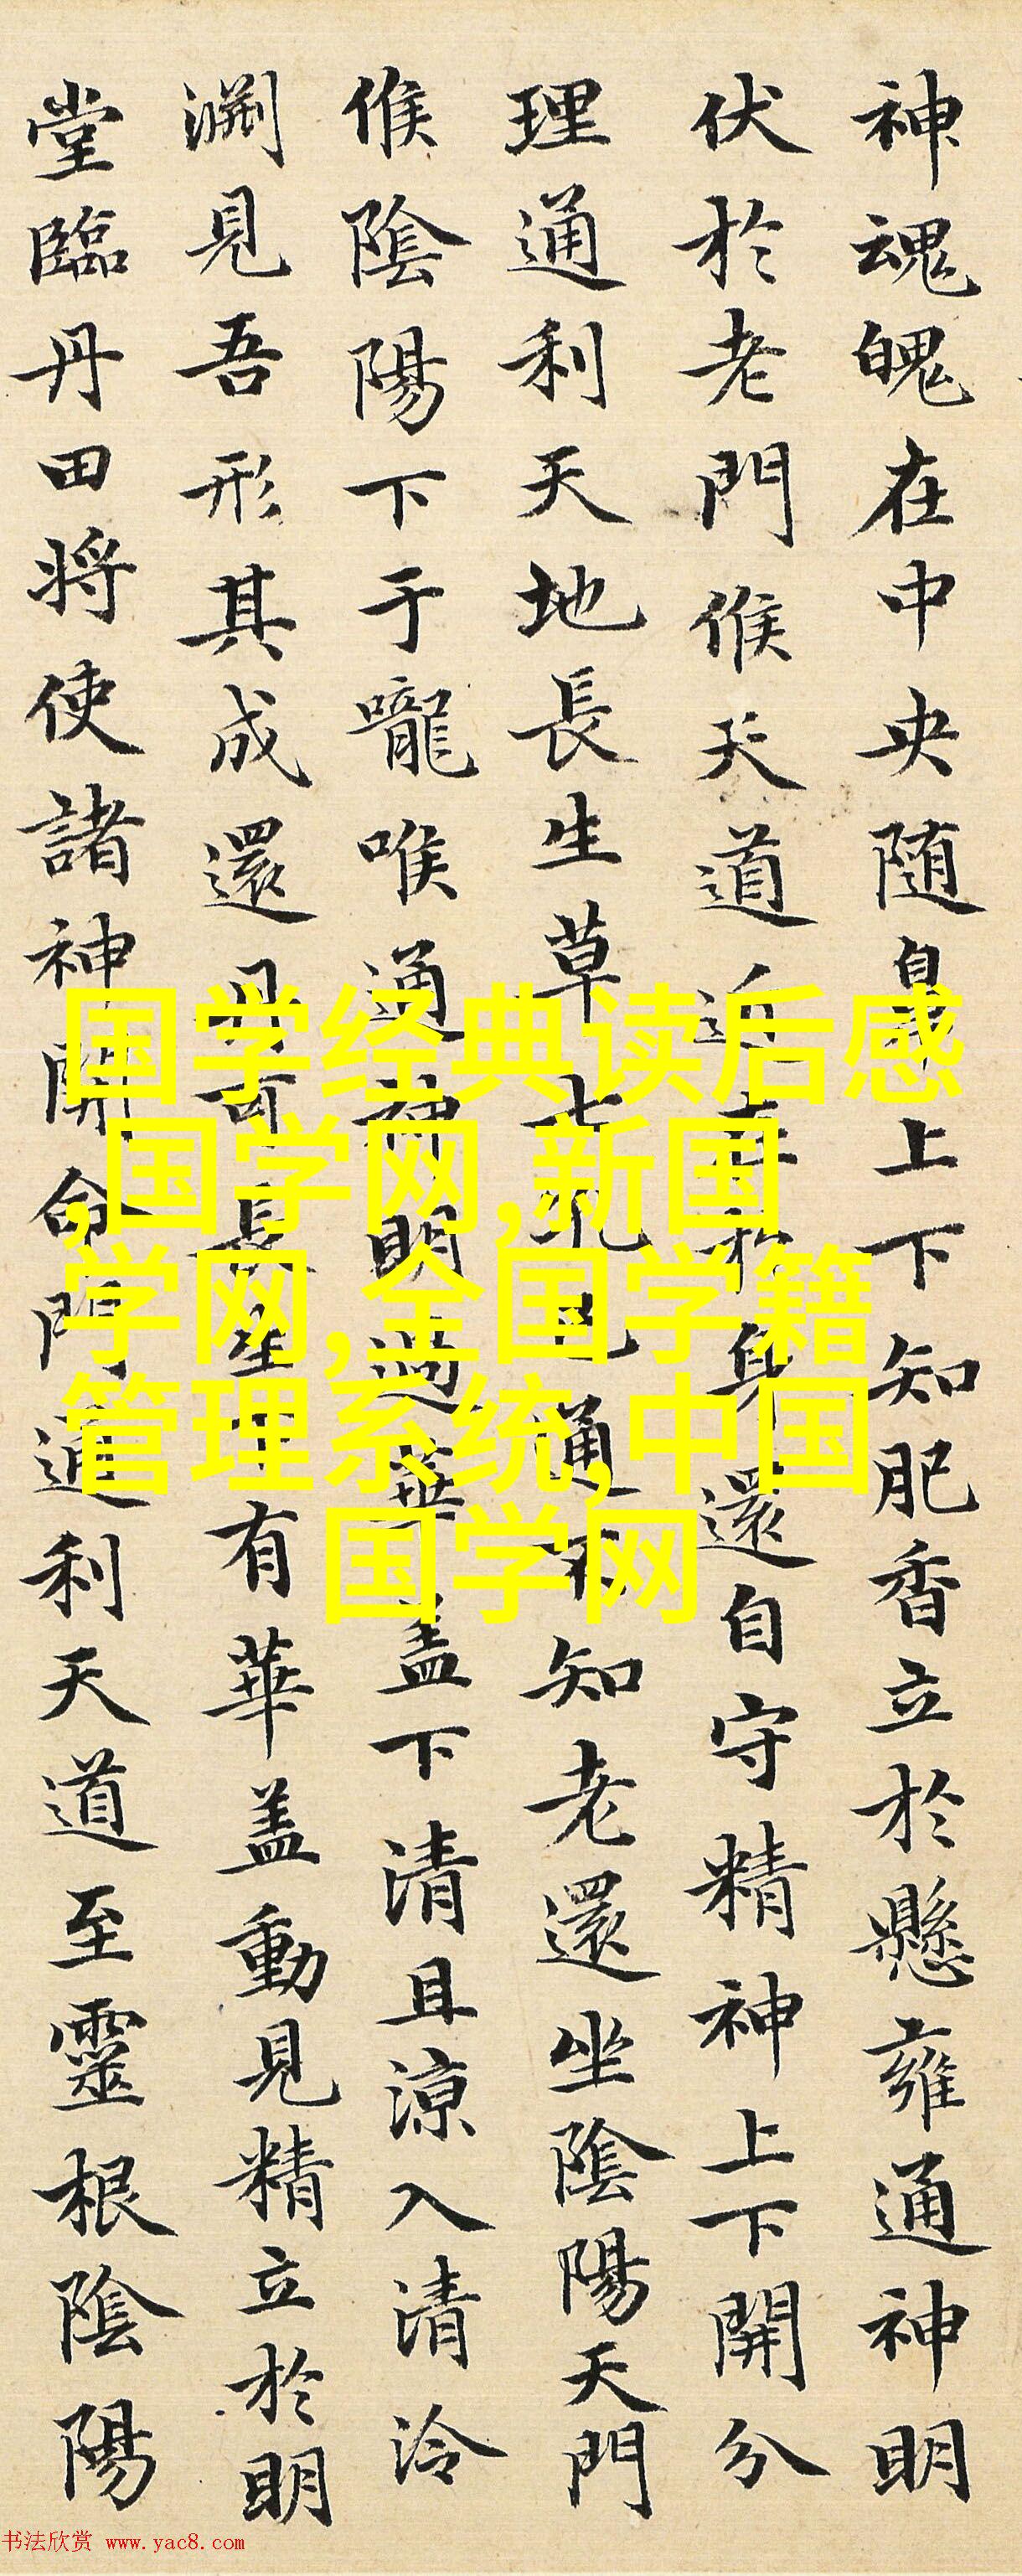 神魂魄在中央随鼻上下知肥香立於懸雍通神明
伏於老門候天道近在於身還自守精神上下開分
理通利天地長生草七孔已通不知老還坐陰陽天門
候陰陽下于嚨喉通神明過華盖下清且涼入清泠
渊見吾形其成還丹可長生下有華盖動見精立於明
堂臨丹田将使諸神開命門通利天道至靈根陰陽
国学经典读后感
,国学网,新国
学网,全国学籍
管理系统,中国
国学网
书法欣赏 www.yac8.com